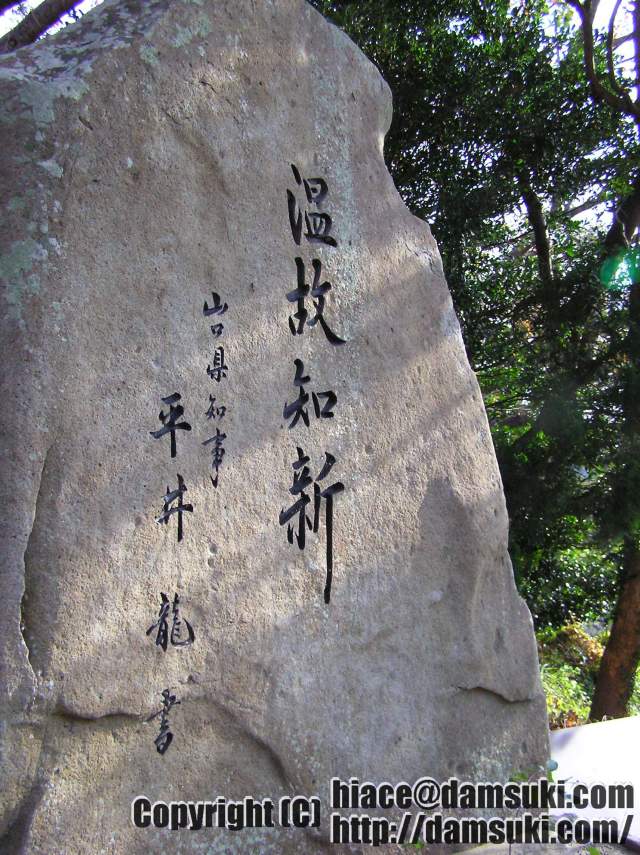 温故知新
山口県知事
平井龍書
Copyright (C) hiace@damsuki.com
http://damsuki.com/